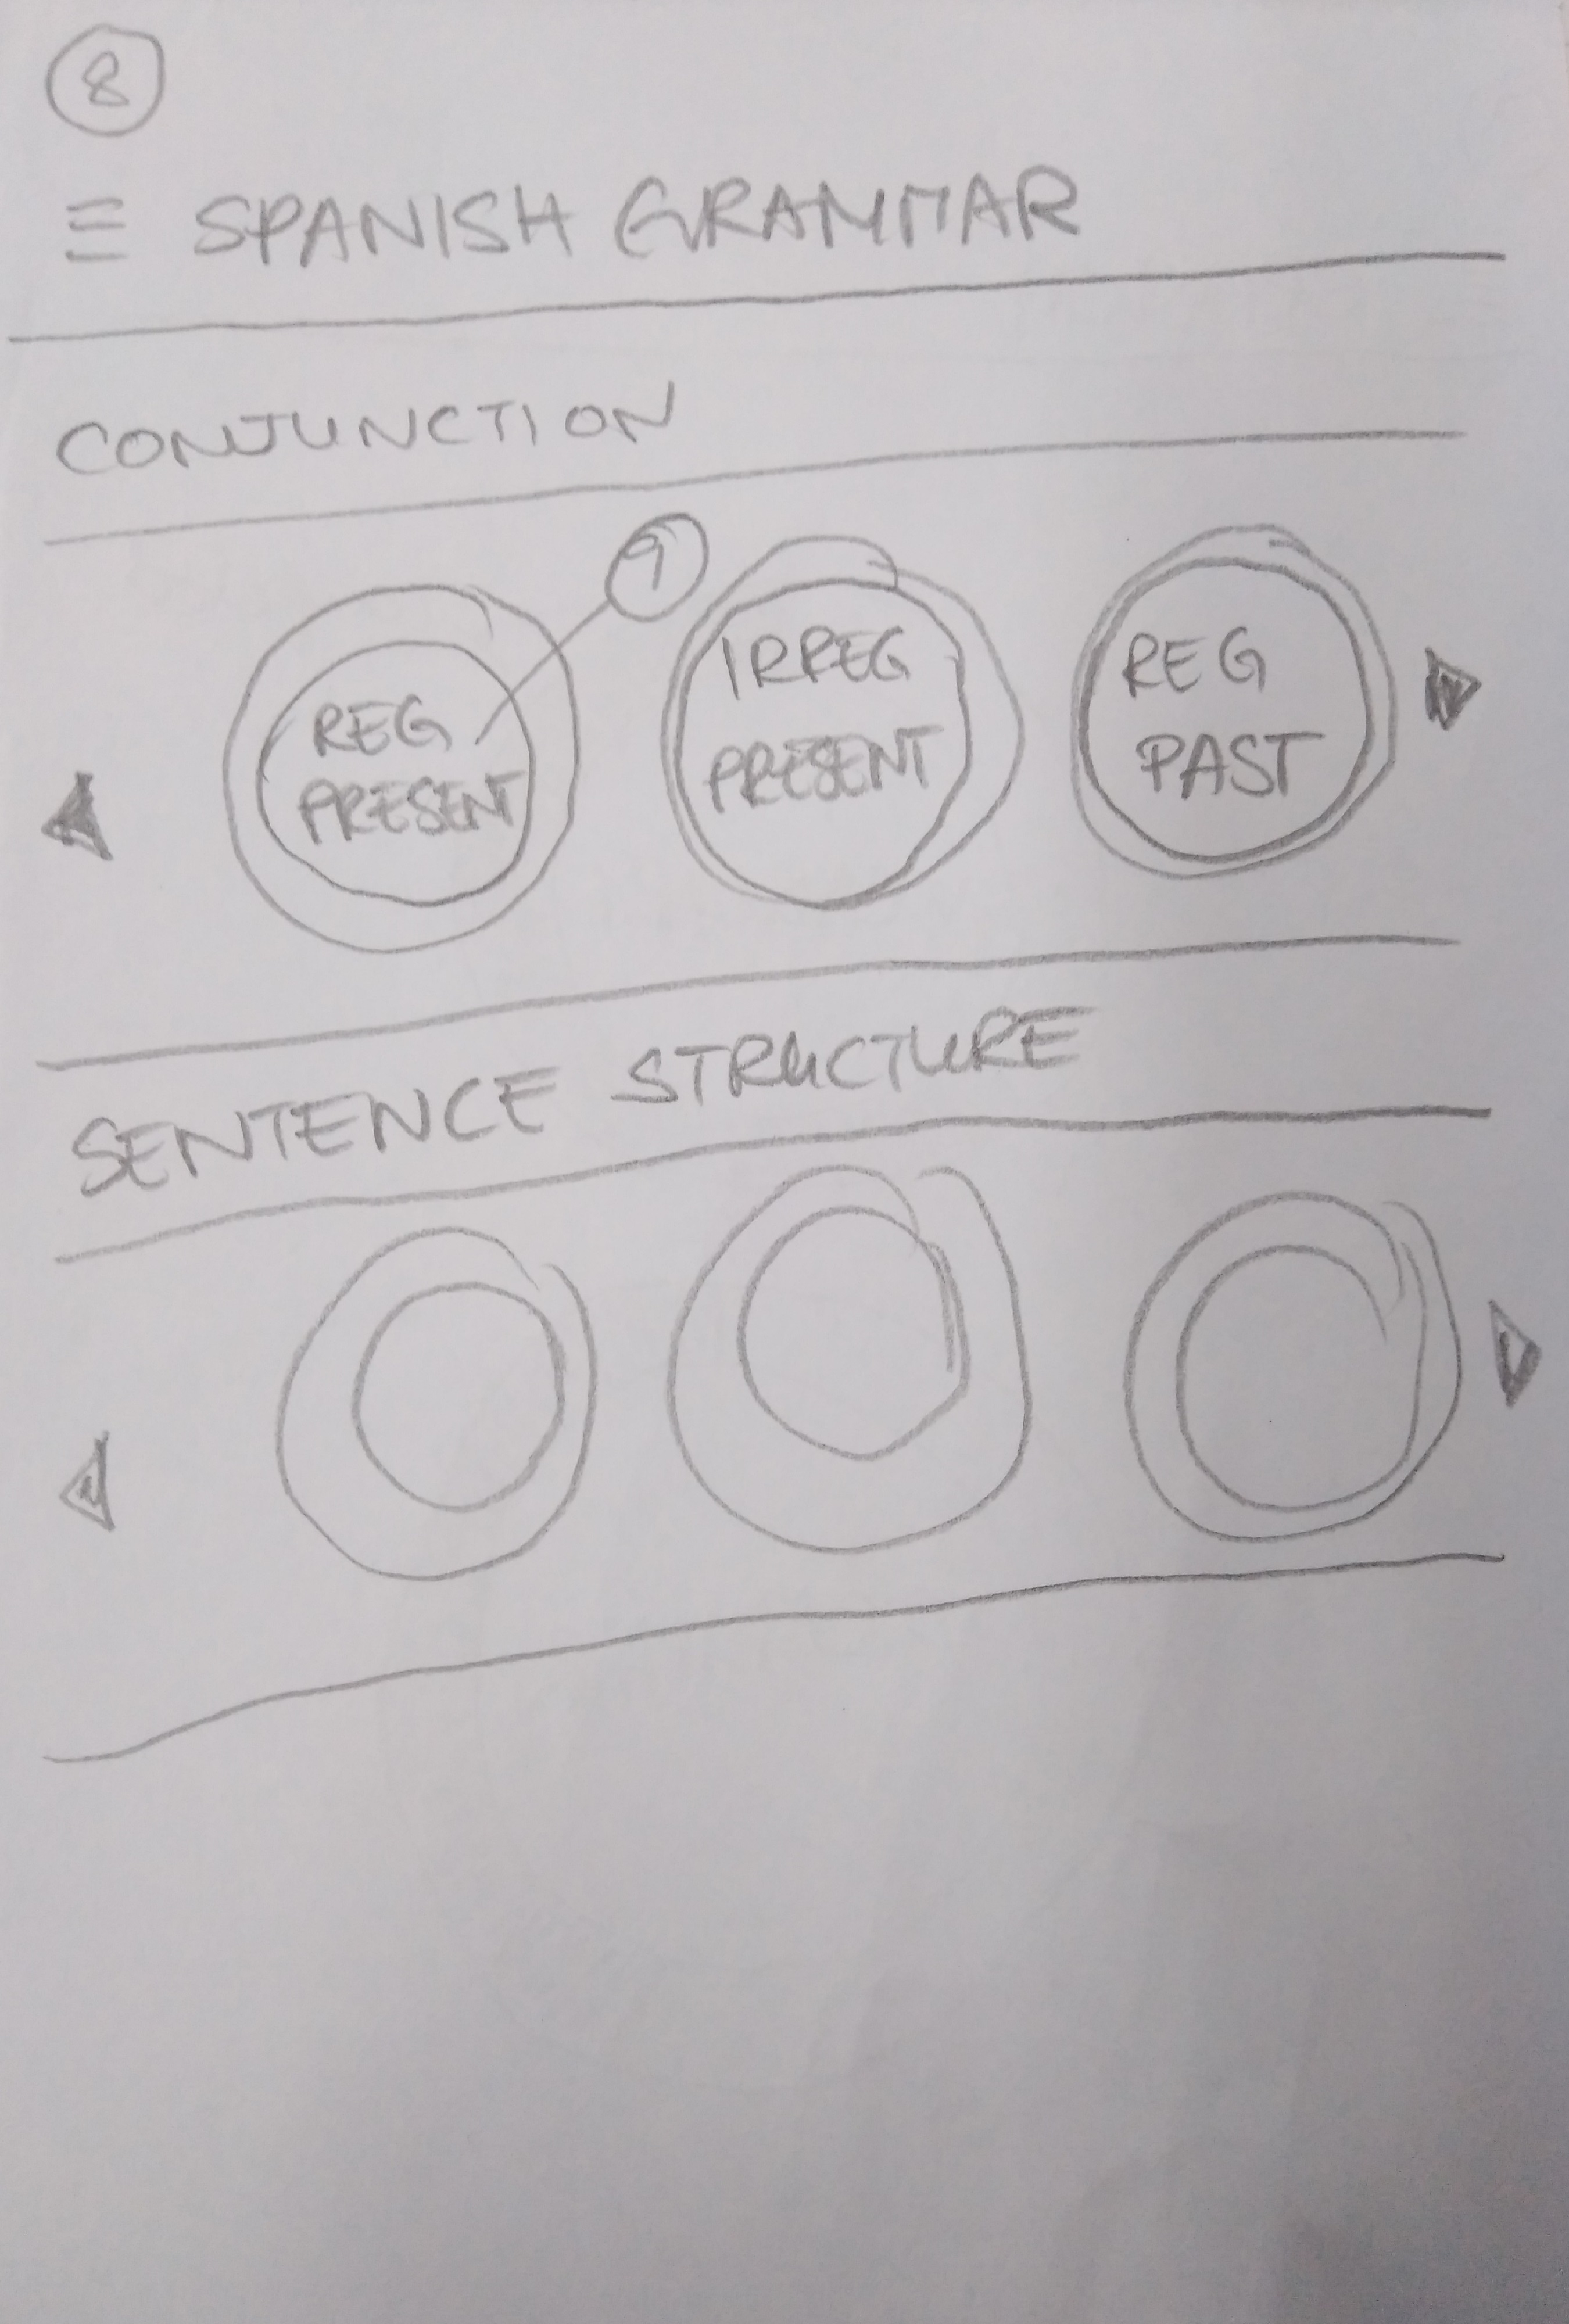 8
SPANISH GRAMMAR
CONJUNCTION
9
REG
PRESENT
IRREG
PRESENT
REG
PAST
SENTENCE STRUCTURE